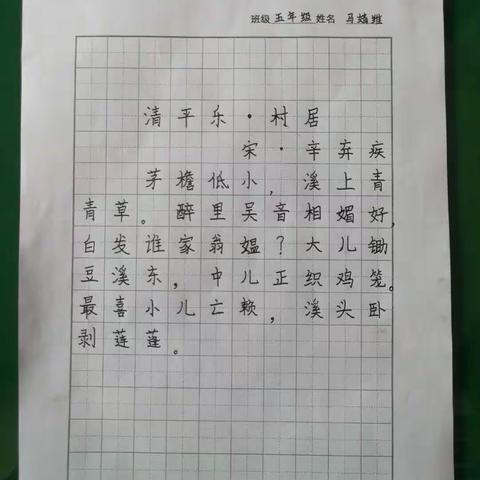 班级 五年级 姓名 马嫱雅
清平乐·村居
宋·辛弃疾
茅檐低小,溪上青
青草。醉里吴音相媚好,
白发谁家翁媪?大儿锄
豆溪东,中儿正织鸡笼。
最喜小儿亡赖,溪头卧
剥莲蓬。